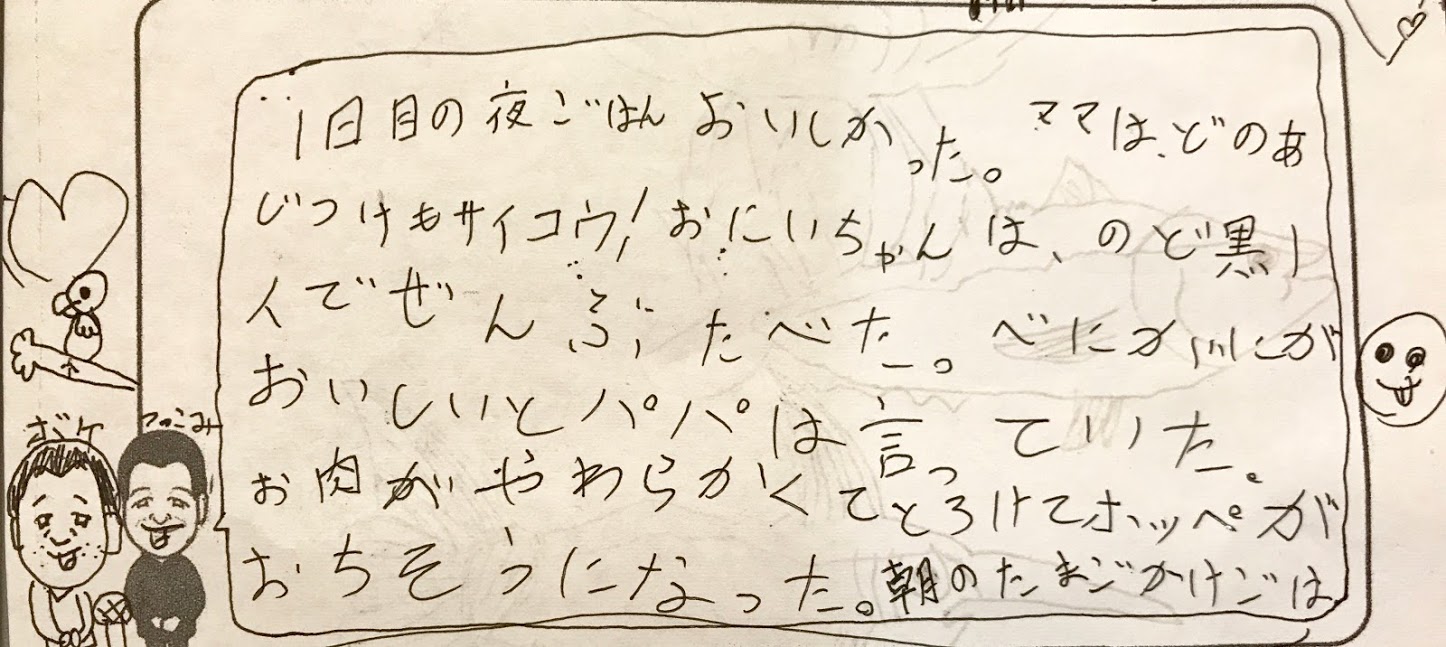 1日目の夜ごはんおいしかった。ママは、どのあ
じつけもサイコウ!おにいちゃんは、のど黒1
人でぜんぶたべた。べにがにが
おいしいとパパは言っていた。
お肉がやわらかくてとろけてホッペが
おちそうになった。朝のたまごかけごは
ボケ
つっこみ